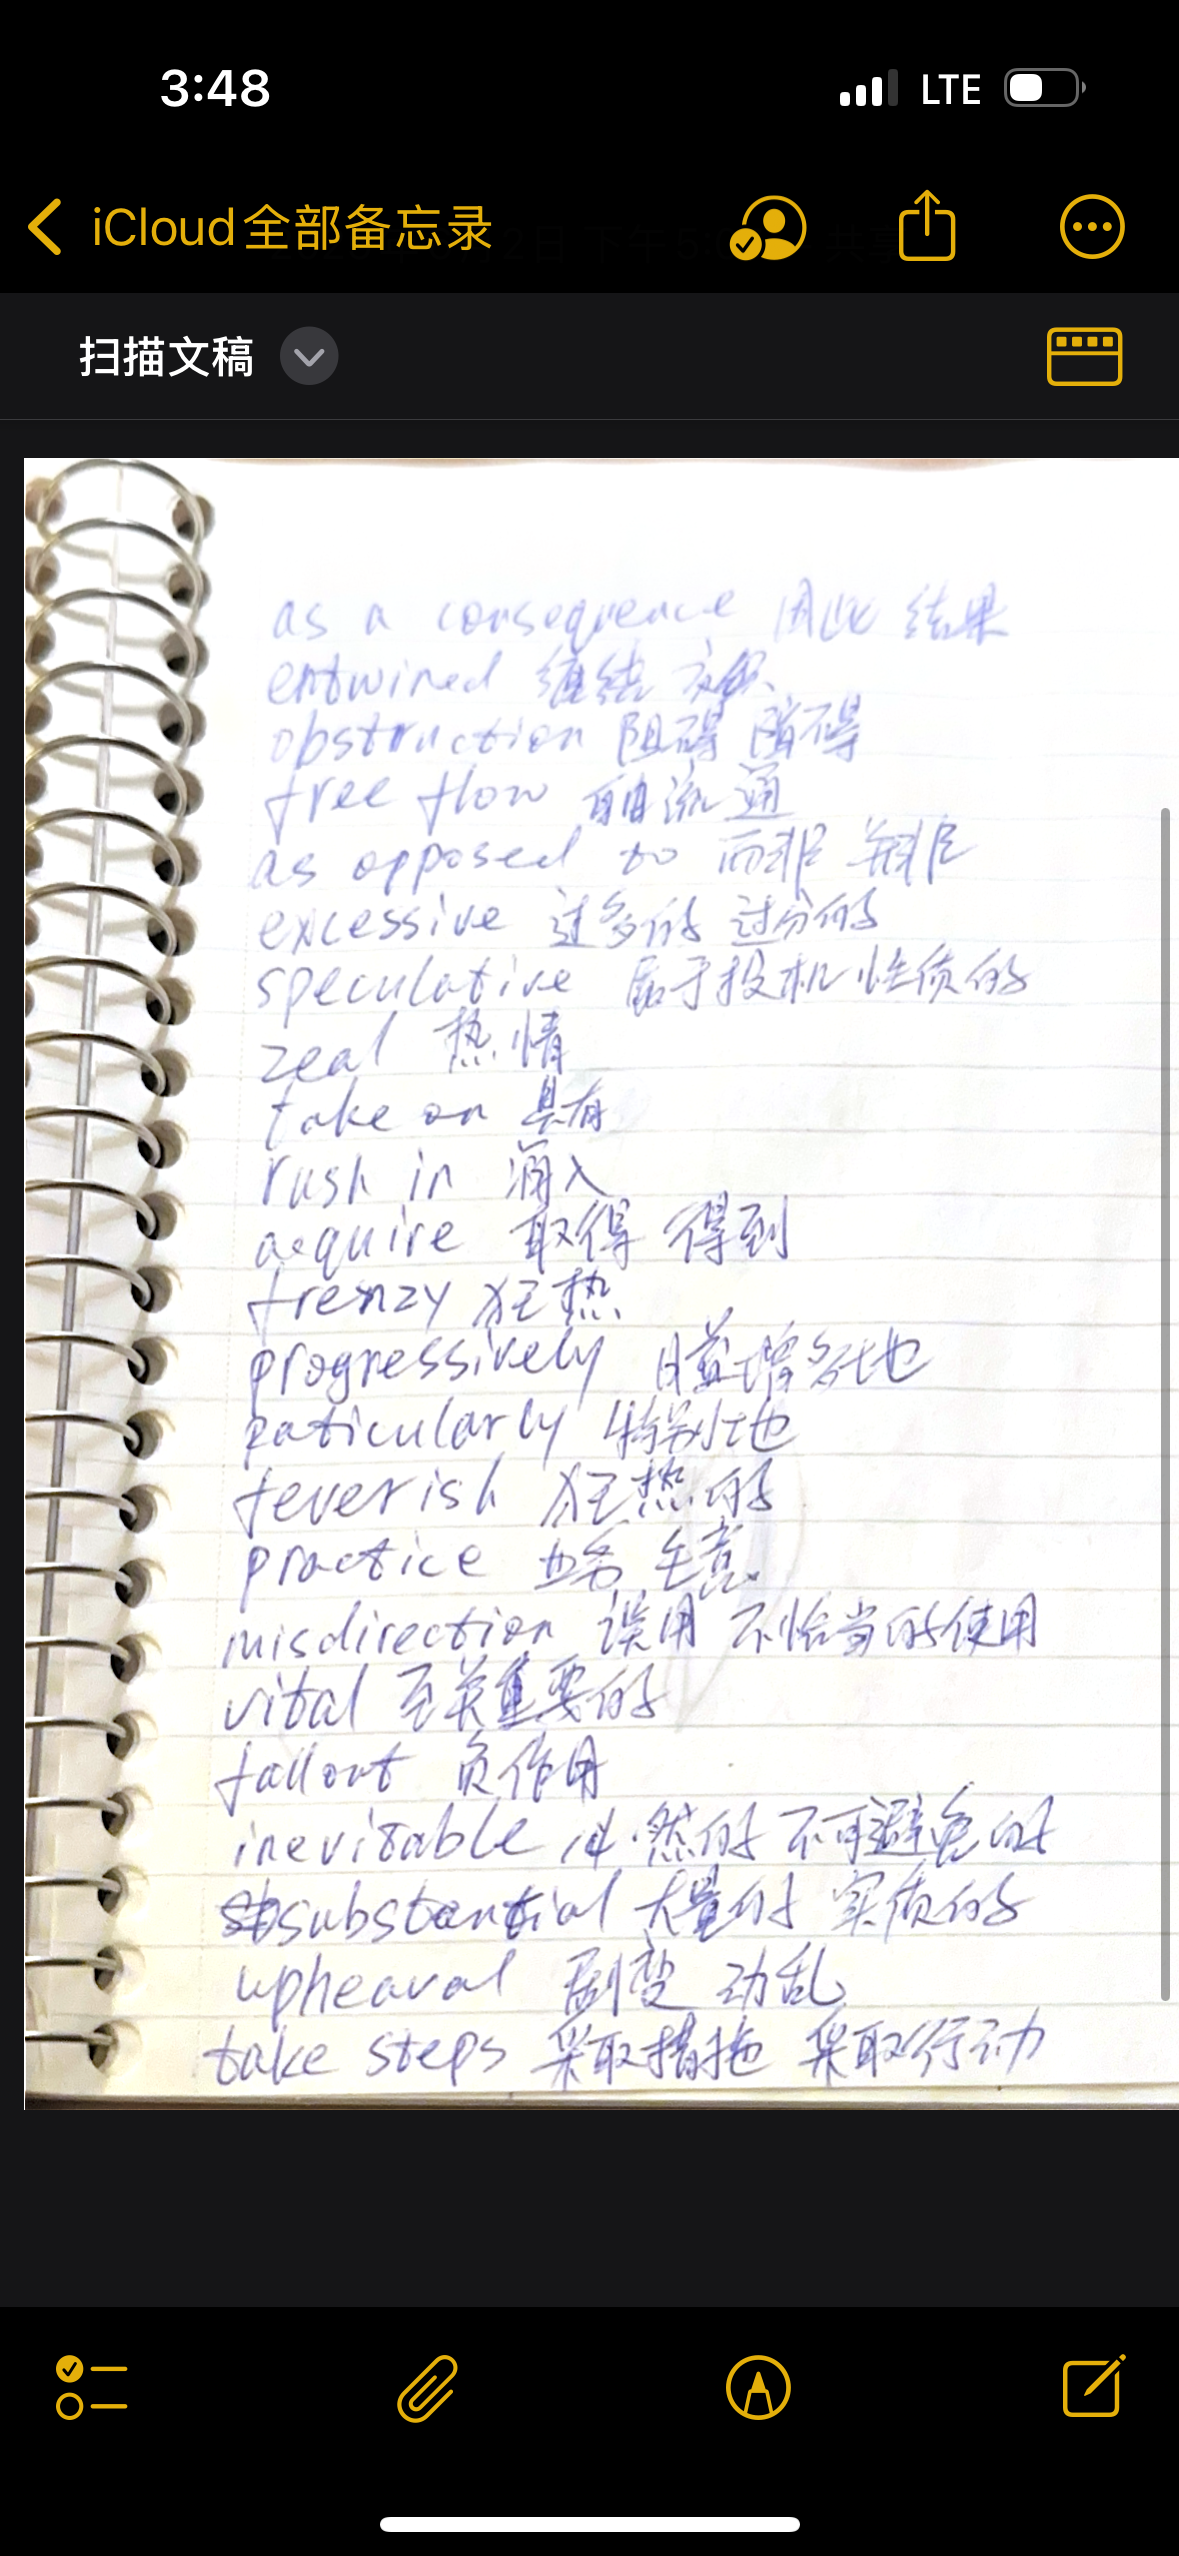 3:48 LTE
iCloud全部备忘录
扫描文稿
as a consequence 因此 结果
entwined 缠结
obstruction 阻碍 障碍
free flow 自由流通
as opposed to 而非 并非
excessive 过多的 过分的
speculative 属于投机性质的
zeal 热情
take on 具有
rush in 涌入
acquire 取得 得到
frenzy 狂热
progressively 日益增多地
paticularly 特别地
feverish 狂热的
practice 业务 生意
misdirection 误用 不恰当的使用
vital 至关重要的
fallout 负作用
inevitable 必然的 不可避免的
substantial 大量的 实质的
upheaval 剧变 动乱
take steps 采取措施 采取行动